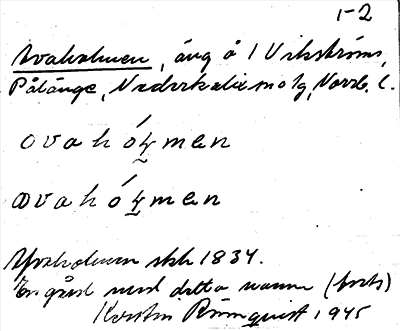 1-2
Avaholmen, äng å 1 Vikströms,
Pålänge, Nederkalix sn o lg, Norrb. l.
ovahóļmen
ɒvahóļmen
holmen skh 1834.
En gård med detta namn (forts)
Kerstin Rönnquist 1945